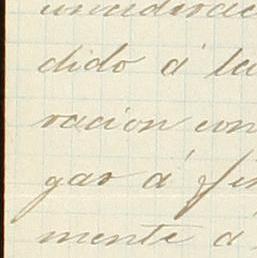 dido á la
racion con
gar á fin
mente á